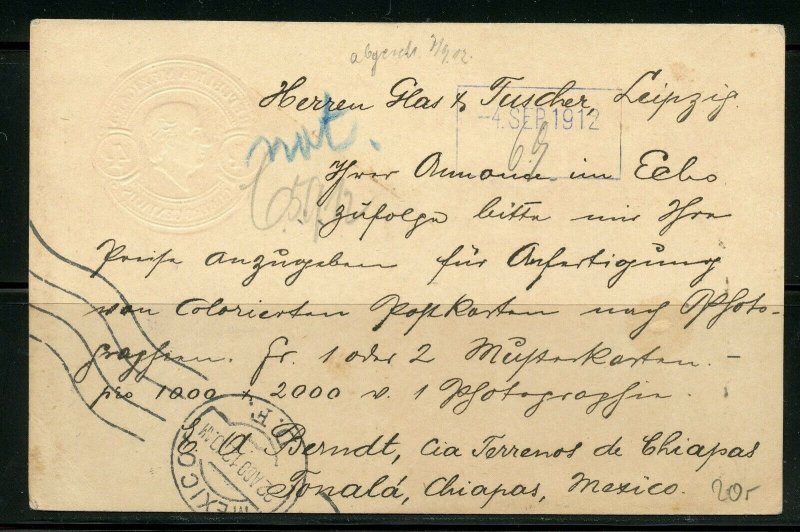 abgesch. 7/9.12.
Herren Glas & Tuscher, Leipzig.
-4. SEP. 1912
not.
Ihrer Annonce im Echo
zufolge bitte mir Ihre
Preise anzugeben für Anfertigung
von colorierten Postkarten nach Photo-
graphien. Gr. 1 oder 2 Musterkarten. -
pro 1000 & 2000 v. 1 Photographie.
Berndt, Cia Terrenos de Chiapas
Tonalá, Chiapas, Mexico.
MEXICO
20-